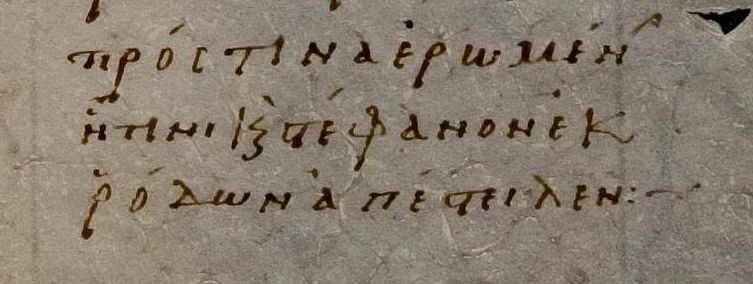 πρόστιναἐρωμέν
ᾗτινικϛέφανονἐκ
ῥόδωνἀπέϛειλεν:~